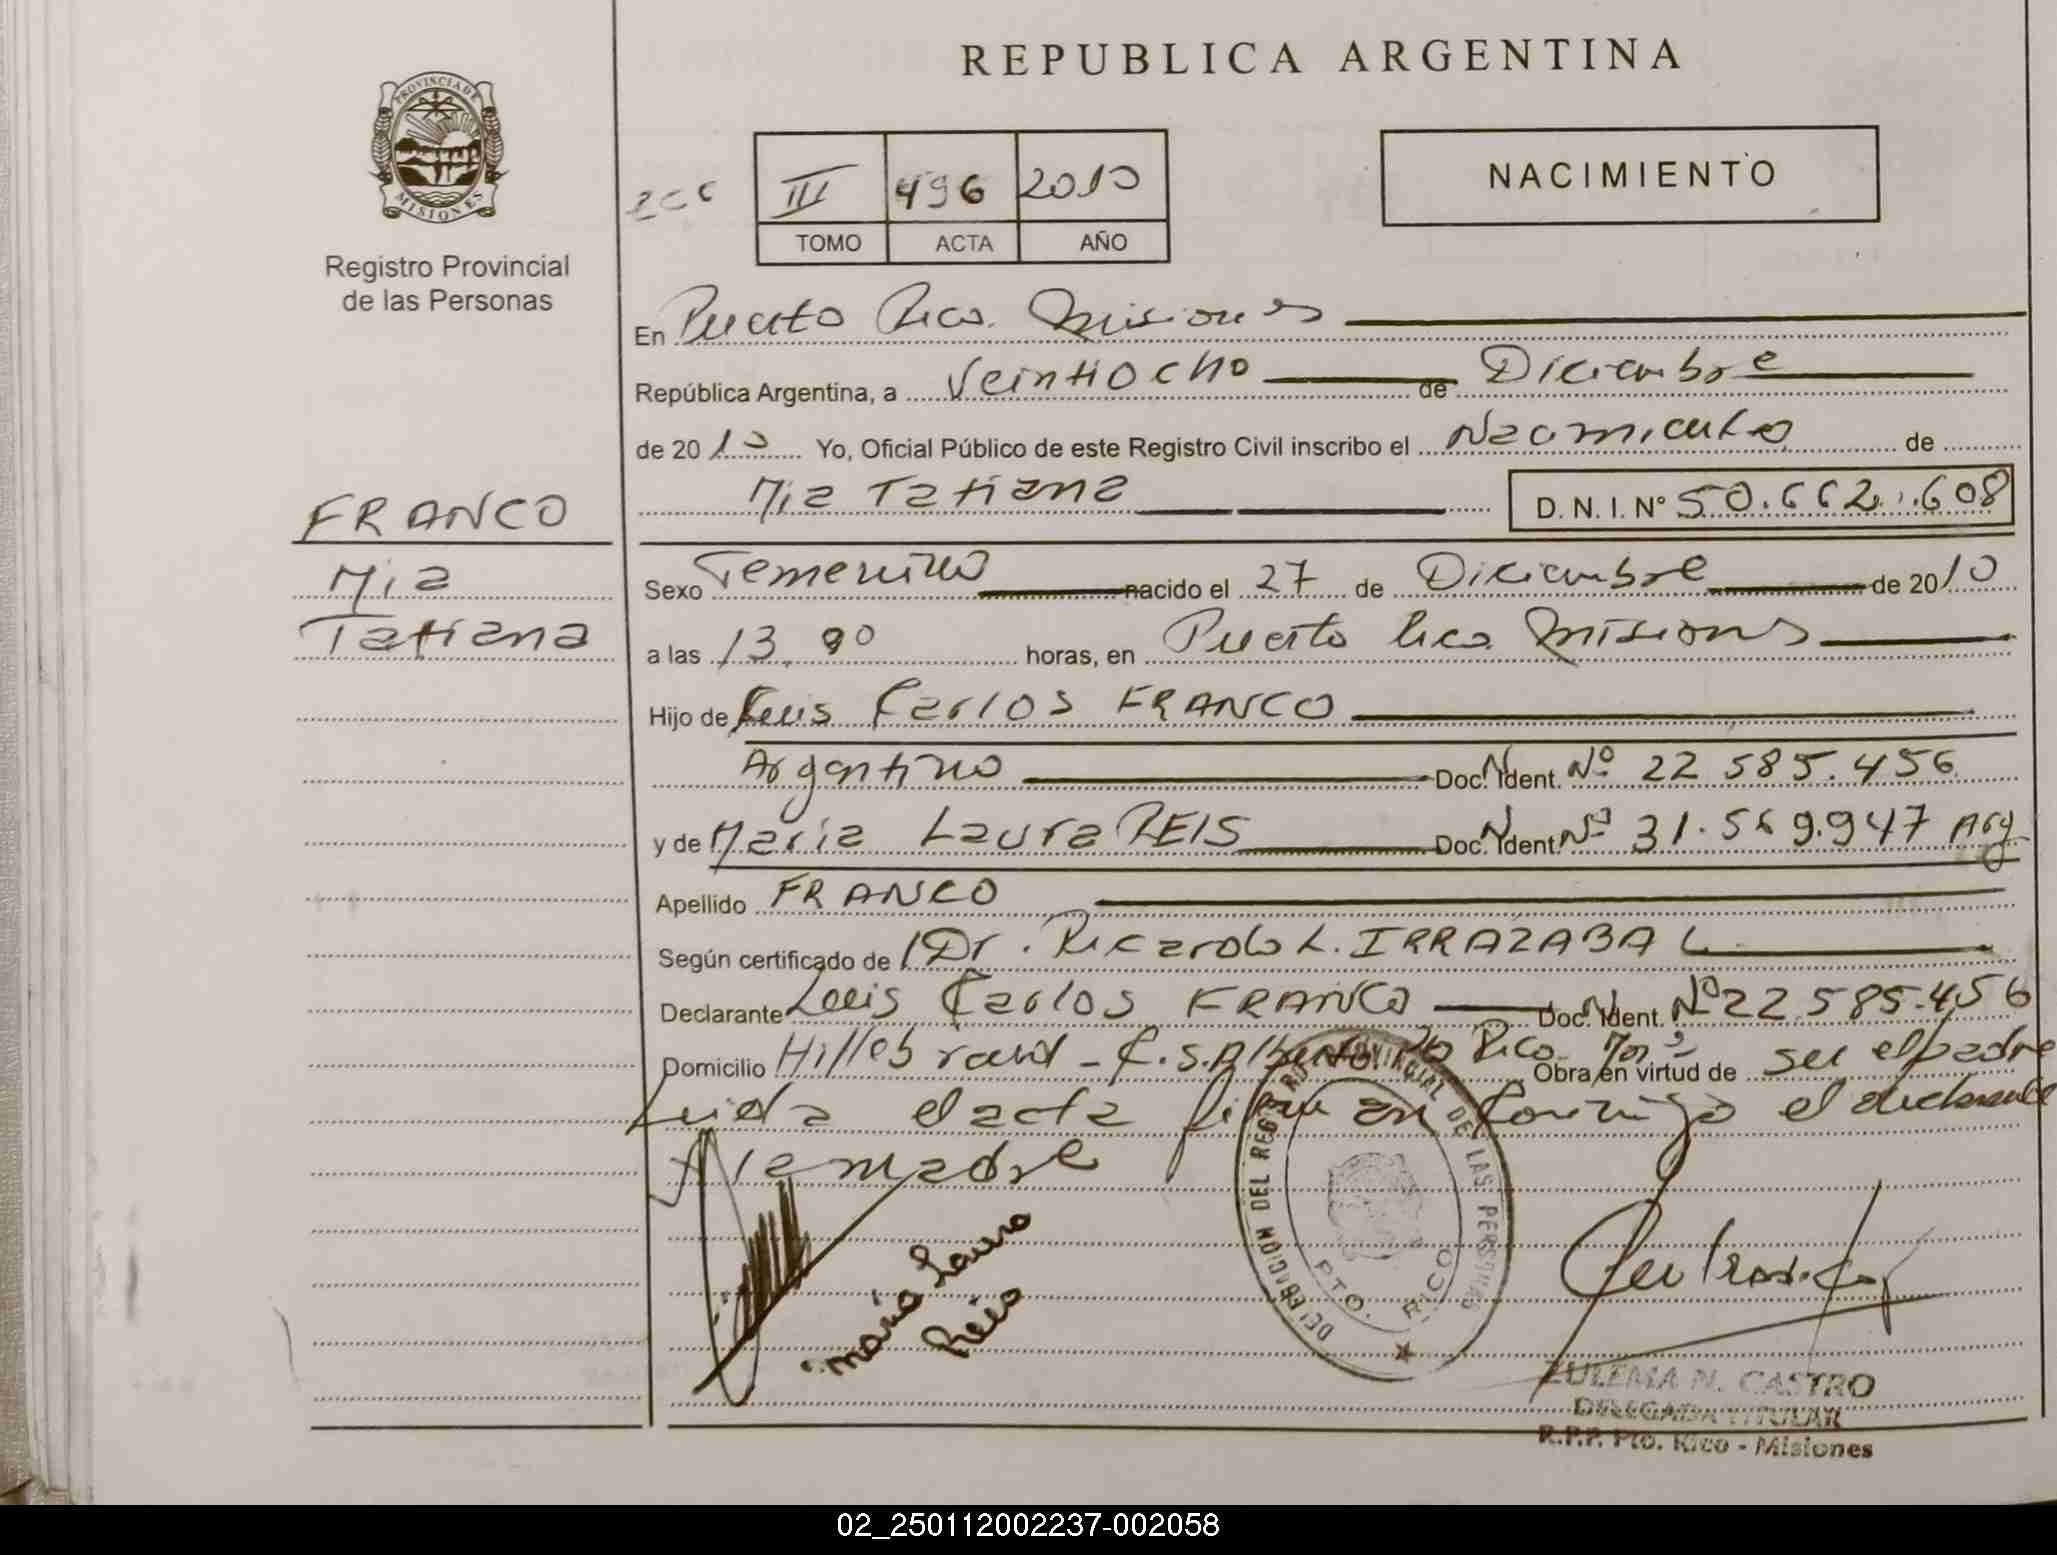 REPUBLICA ARGENTINA
PROVINCIA DE MISIONES
Registro Provincial
de las Personas
III 496 2010
TOMO ACTA AÑO
NACIMIENTO
En Puerto Rico. Misiones
República Argentina, a Veintiocho de Diciembre
de 2010 Yo, Oficial Público de este Registro Civil inscribo el Nacimiento de
Mia Tatiana D. N. I. Nº 50.662.608
FRANCO
Mia
Tatiana
Sexo Femenino nacido el 27 de Diciembre de 2010
a las 13, horas, en Puerto Rico Misiones
Hijo de Luis Carlos FRANCO
Argentino Doc. Ident. Nº 22 585.456
y de Maria Laura REIS Doc. Ident. Nº 31.569.947 Arg
Apellido FRANCO
Según certificado de Dr. Ricardo L. IRRAZABAL
Declarante Luis Carlos FRANCO Doc. Ident. Nº 22.585.456
Domicilio Hillebrand - Pto Rico Obra en virtud de ser el padre
Leida el acta firman conmigo el declarante
y la madre
Maria Laura
Reis
DELEGACION DEL REGISTRO PROVINCIAL DE LAS PERSONAS
PTO. RICO
ZULEMA N. CASTRO
DELEGADA TITULAR
R.P.P. Pto. Rico - Misiones
02_250112002237-002058